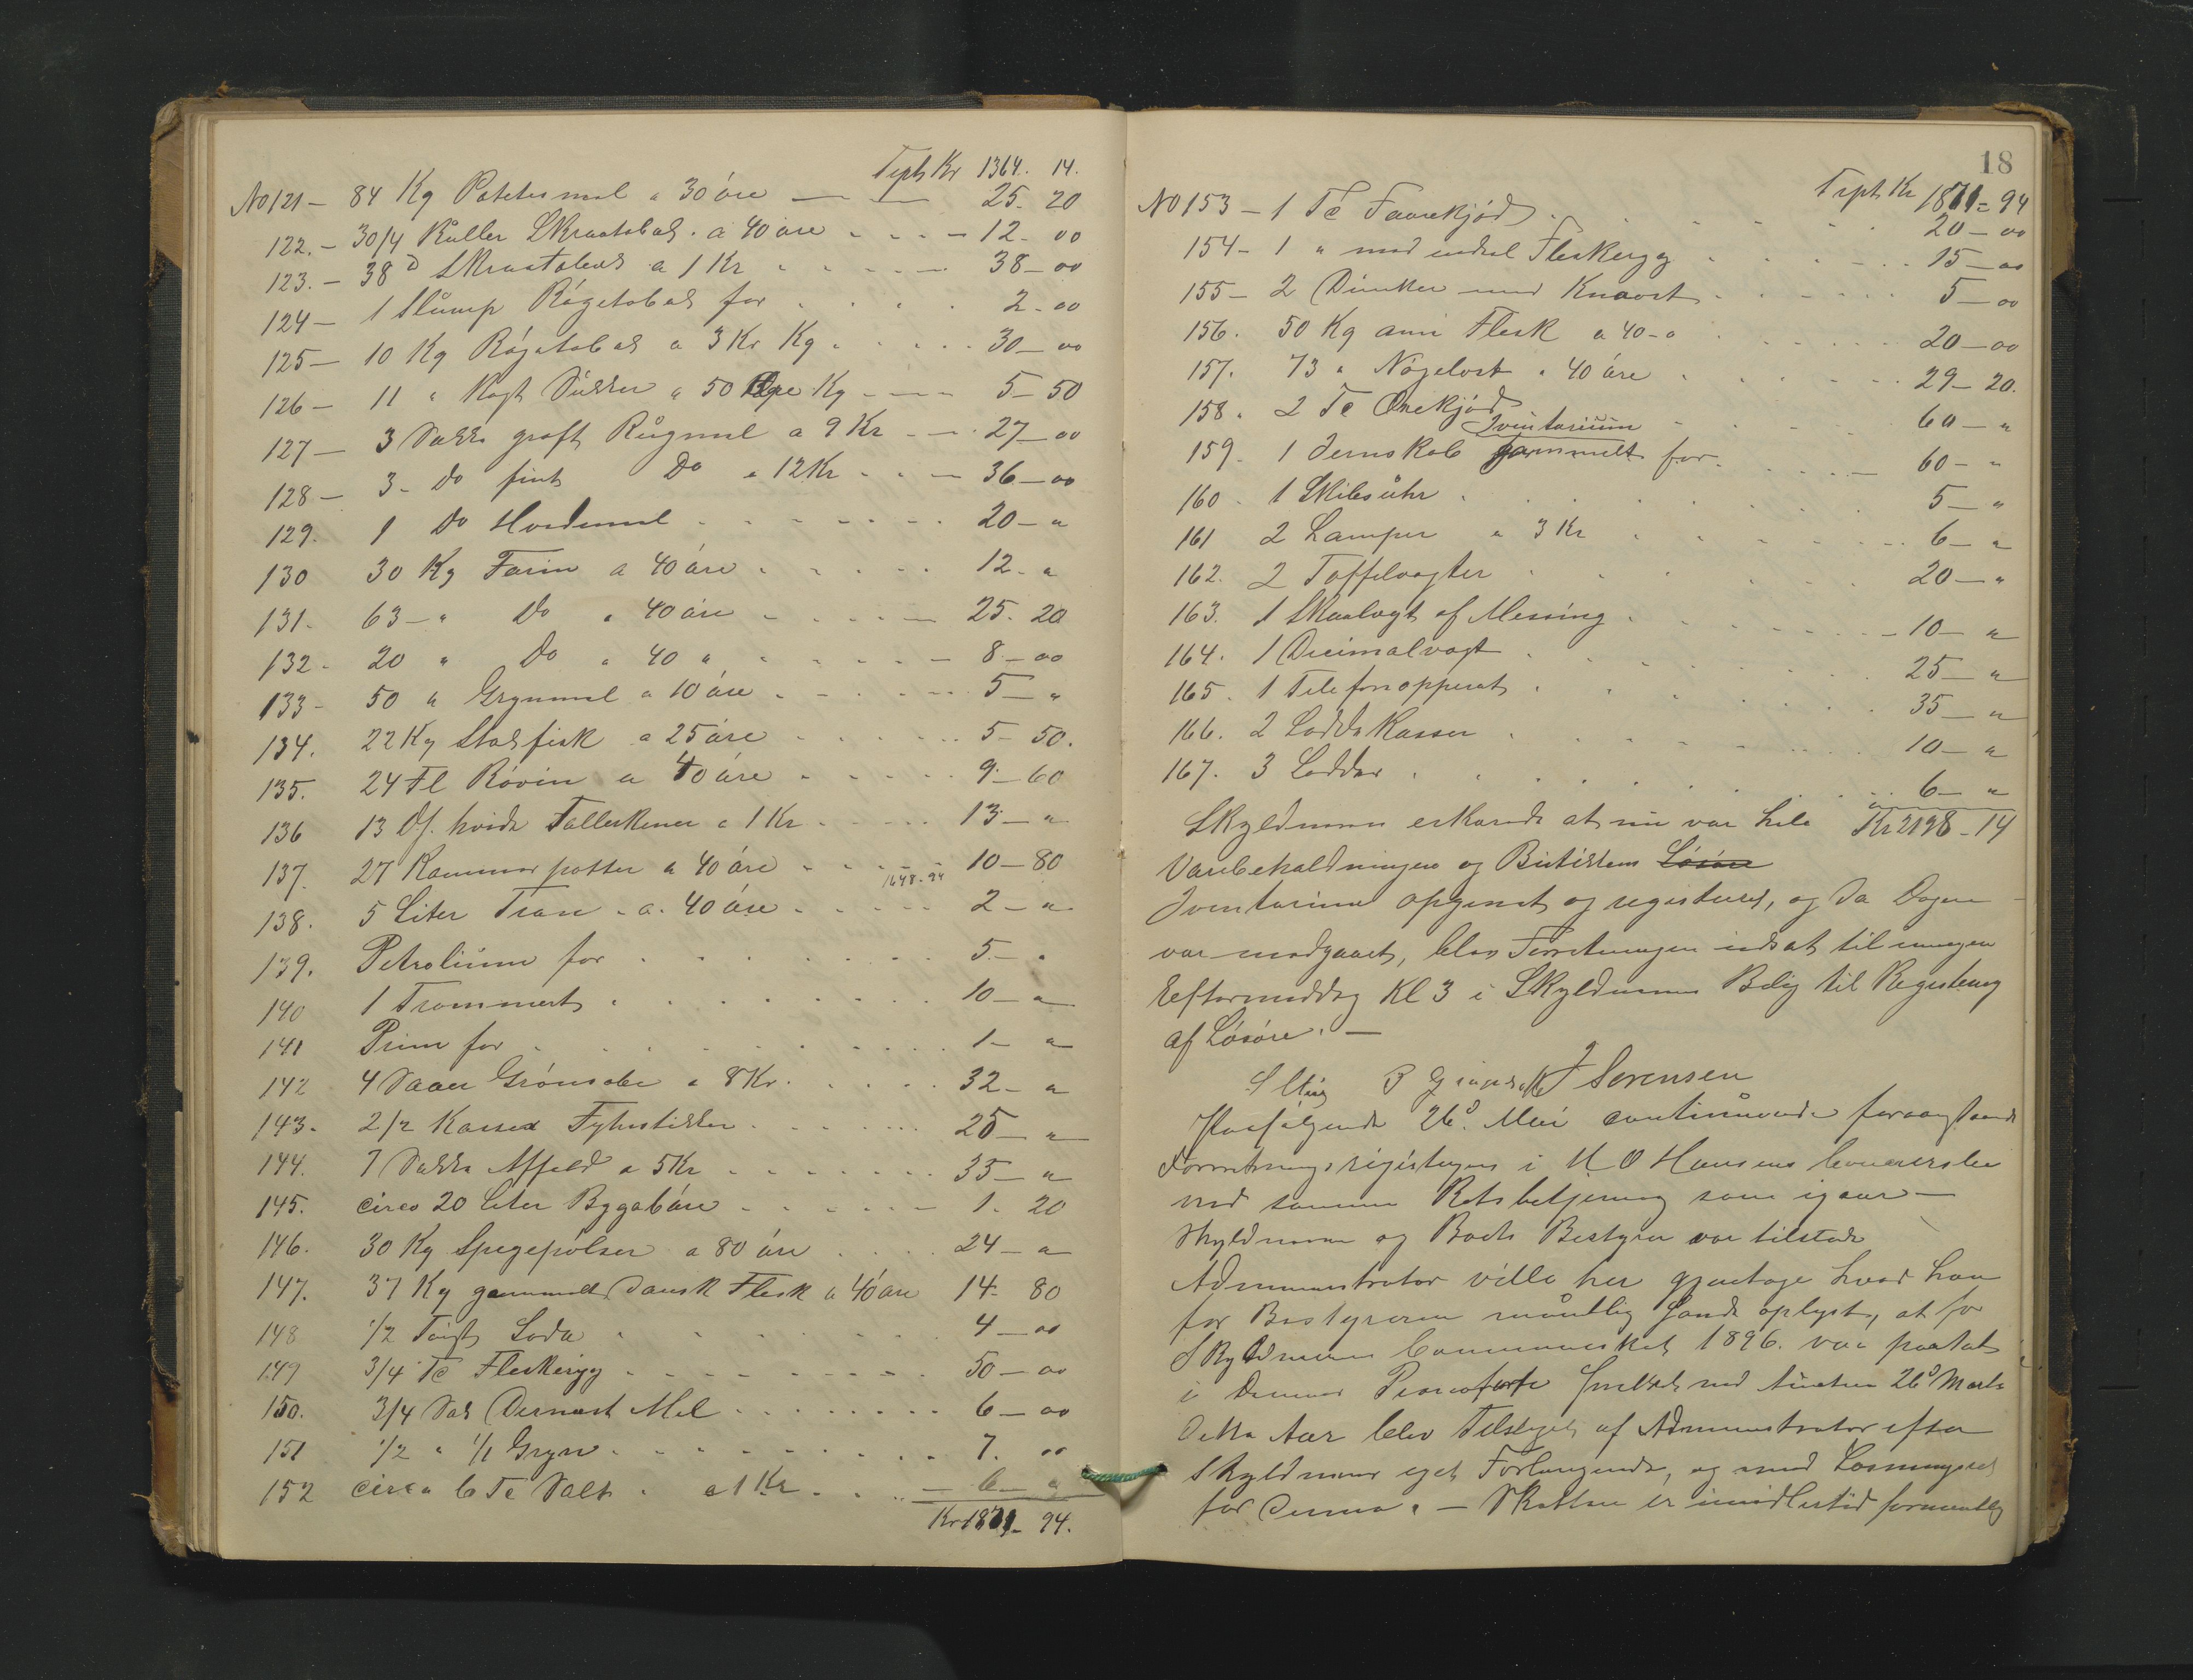 Trpt Kr 1364. 14.
No 121 – 84 Kg Potetesmel a 30 öre — — 25. 20
122. – 30/4 Ruller Skraatobak . a 40 öre - - - – 12 - 00
123. – 38 d Skraatobak a 1 Kr - - - - 38 – 00
124 – 1 Slump Rögetobak for . . . . 2 - 00
125 – 10 Kg Rögetobak a 3 Kr Kg . . . . 30 – 00
126 – 11 " Kogt Sukker a 50 Kg - - - 5 – 50
127 – 3 Sække groft Rugmel a 9 Kr - - . 27 – 00
128 – 3 - do fint Do a 12 Kr - - – 36 – 00
129. 1 Do Hvedemel - - - - - - - 20 – "
130 30 Kg Farin a 40 öre - - - - - 12 - "
131. 63 – " Do a 40 öre - - - - – 25. 20
132. 20 " Do a 40 " - - - - – 8 – 00
133 – 50 " Grynmel a 10 öre - - - - - 5 – "
134. 22 Kg Stokfisk a 25 öre - - - - - 5 – 50.
135. 24 Fl Rövin a 40 öre - - - - - 9 – 60
136 13 hvide Tallerkener a 1 Kr - - - - - 13 – "
137. 27 Kammerpotter a 40 öre - - - - - 10 – 80
1648 - 94
138. 5 Liter Tran - a. 40 öre - - - - - 2 – "
139. Petrolium for . . . . . . . 5 – "
140 1 . . . . . . . . 10 – "
141 Prim for . . . . . . . . . 1 – "
142 4 Grönsæbe a 8 Kr . . . . . 32 – "
143. 2/2 Kasser Fyhrstikker . . . . . . 25 – "
144. 7 Sække Affald a 5 Kr . . . . . . . 35 – "
145. circa 20 Liter - - - - - – 1. 20
146. 30 Kg Spegepölser a 80 öre . . . . 24 – "
147. 37 Kg gammelt Dansk Flesk a 40 öre 14 - 80
148 1/2 Soda . . . . . . . 4 – 00
149 3/4 Te Fleskerygg . . . . . . . . . 50 – 00
150. 3/4 Sæk Mel . . . . . . . . 6 – 00
151 1/2 " 1/1 Gryn . . . . . . . . . 7. 00
152 circa 6 Te Salt . a 1 Kr . . . – 6 – "
Kr 1871 – 94.
18
Trpt Kr 1871 = 94
No 153 – 1 Te Faarekjöd . . . . . . . 20 – 00
154 – 1 " med endel Fleskerygg . . . . . . 15 – 00
155 – 2 Dunker med Knaost . . . . . . 5 – 00
156. 50 Kg Flesk a 40 - . . . . . . 20 – 00
157. 73 " Nögelost a 40 öre . . . . . 29 – 20.
158. 2 Te Oxekjöd . . . . . 60 – "
Iventarium
159. 1 Jernskab gammelt for . . . . – 60 – "
160 . 1 Skibsuhr . . . . . . . . 5 – "
161 2 Lamper a 3 Kr . . . . . . . 6 – "
162. 2 Taffelvægter . . . . . . . 20 – "
163. 1 Skaalvegt af Messing . . . . . . . 10 – "
164. 1 Decimalvægt . . . . . . . . 25 – "
165. 1 Telefonapperat . . . . . . . . 35 – "
166. 2 Kasser . . . . . . . . 10 – "
167. 3 . . . . . . . . . 6 – "
Kr 2198 – 14
Skyldneren erklærede at nu var hele
Varebeholdningen og Butikkens Lösöre
Iventarium opgivet og registeret, og da Dagen
var medgaaet, blev Forretningen udsat til imorgen
Eeftermiddag Kl 3 i Skyldnerens Bolig til Registering
af Lösöre. —
J Sorensen
Paafölgende 26d. Mai continuerede foranstaaende
Forretnings i M. O Hansens
ved samme Retsbetjening som igaar —
Skyldneren og Boets Bestyrer var tilstede
Administrator vilde her gjentage hvad han
for Bestyreren mundtlig havde oplyst, at for
Skyldnerens 1896. var
i Dennes Pianoforte ved Auction 26d Marts
Dette Aar blev af Administrator efter
Skyldneren eget Forlangende, og med
for Denne. — Skatten er imidlertid formentlig